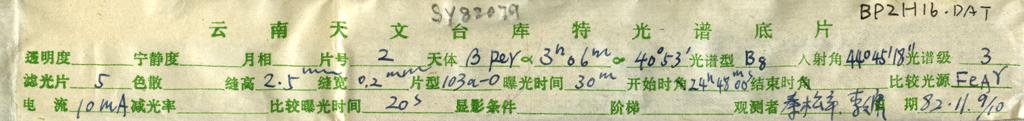 SY82079
BP2H16.DAT
云南天文台库特光谱底片
透明度 宁静度 月相 片号 2 天体 β per α 3h06m δ 40°53' 光谱型 B8 入射角 44°45'18" 光谱级 3
滤光片 5 色散 缝高 2.5mm 缝宽 0.2mm 片型 103a-0 曝光时间 30m 开始时角 24h48m00s 结束时角 比较光源 FeAr
电流 10mA 减光率 比较曝光时间 20s 显影条件 阶梯 观测者 日期 82.11.9/10